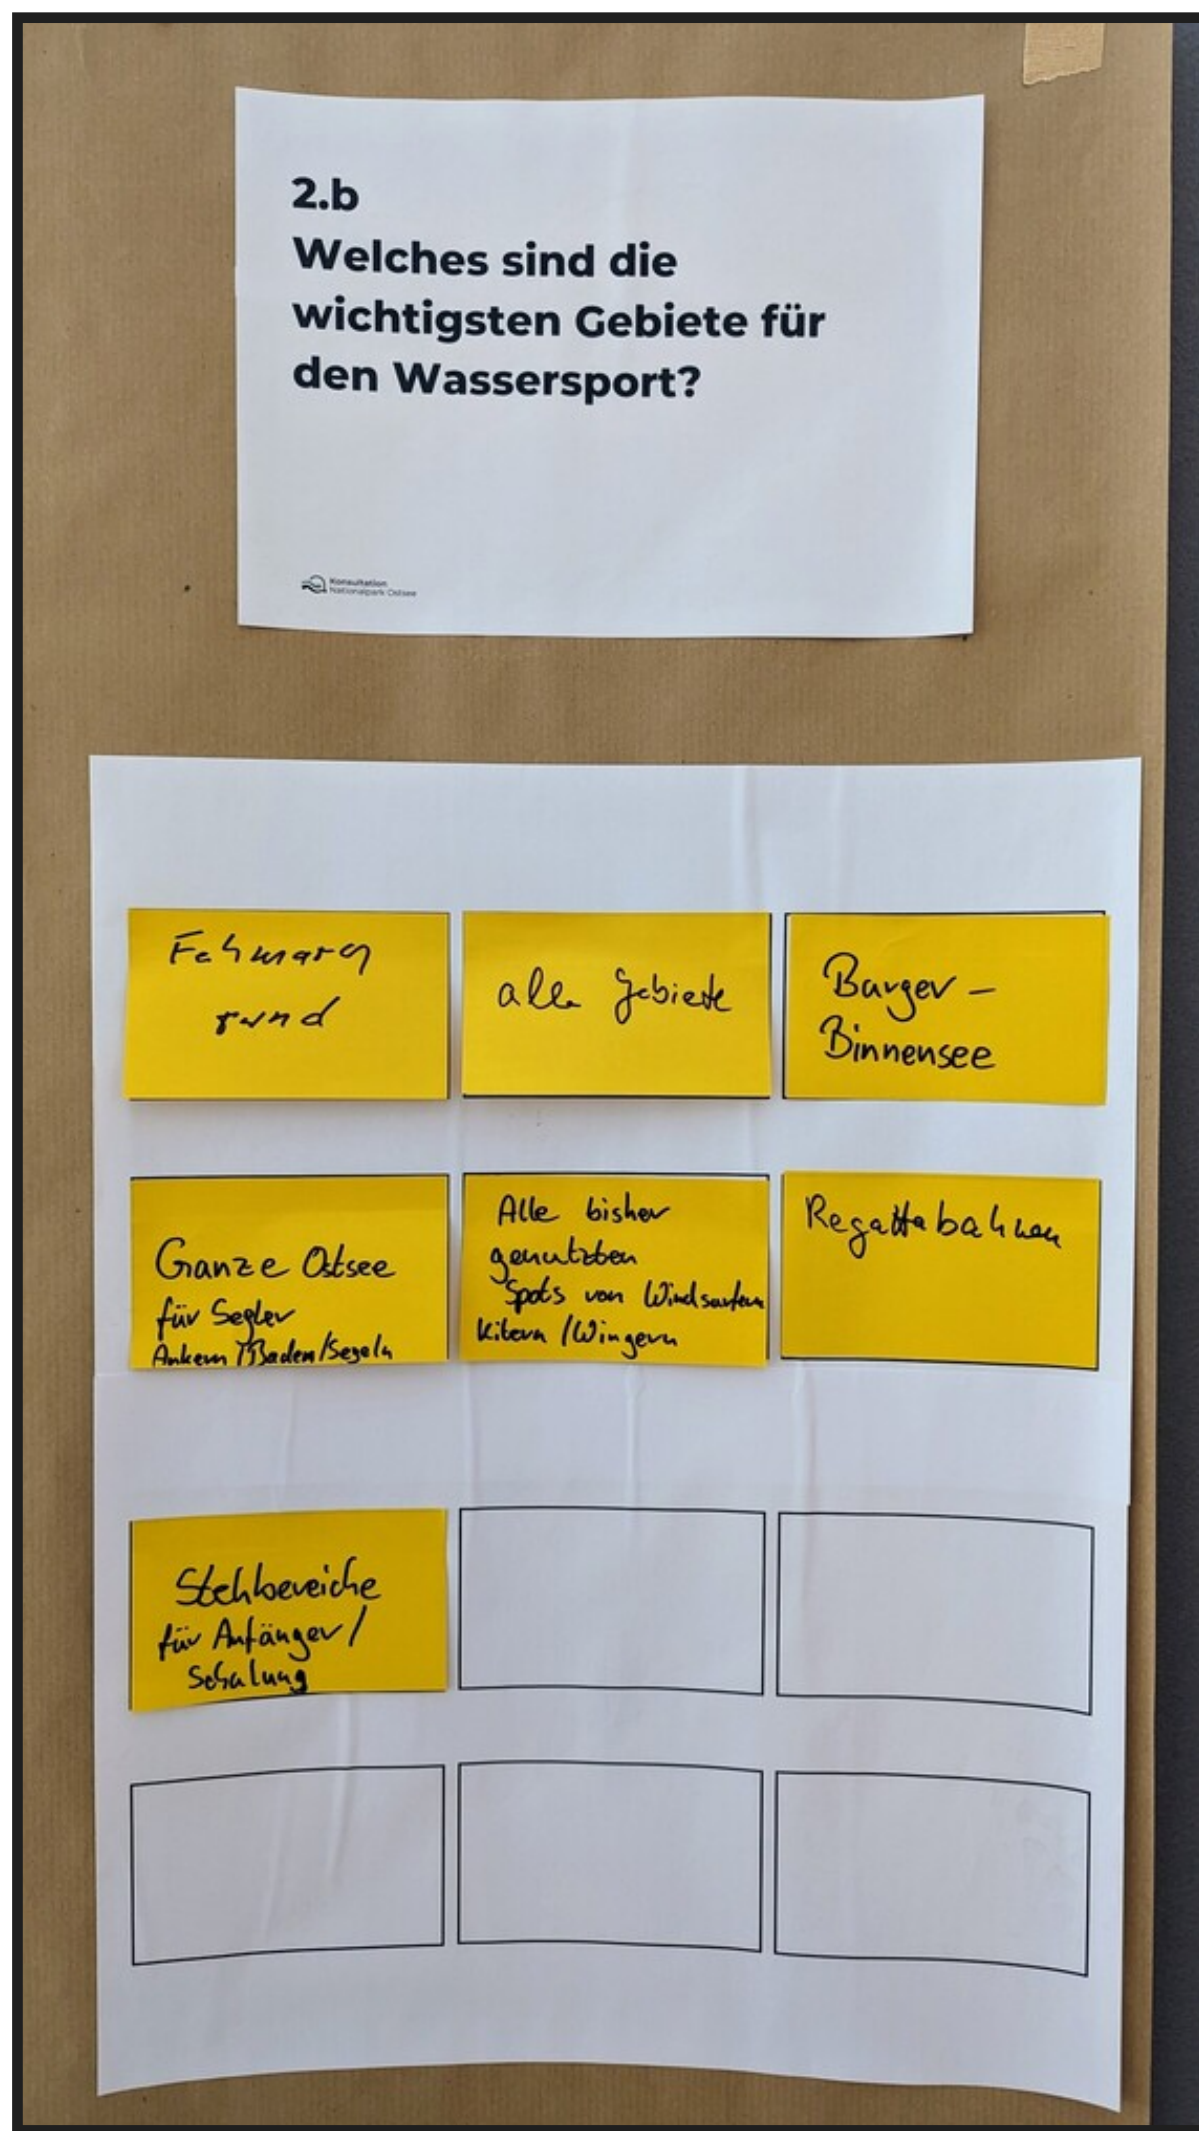 2.b
Welches sind die
wichtigsten Gebiete für
den Wassersport?
Konsultation
Nationalpark Ostsee
Fehmarn
rund
alle Gebiete
Burger-
Binnensee
Ganze Ostsee
für Segler
Ankern/Baden/Segeln
Alle bisher
genutzten
Spots von Windsurfern
Kitern/Wingern
Regattabahnen
Stehbereiche
für Anfänger/
Schulung